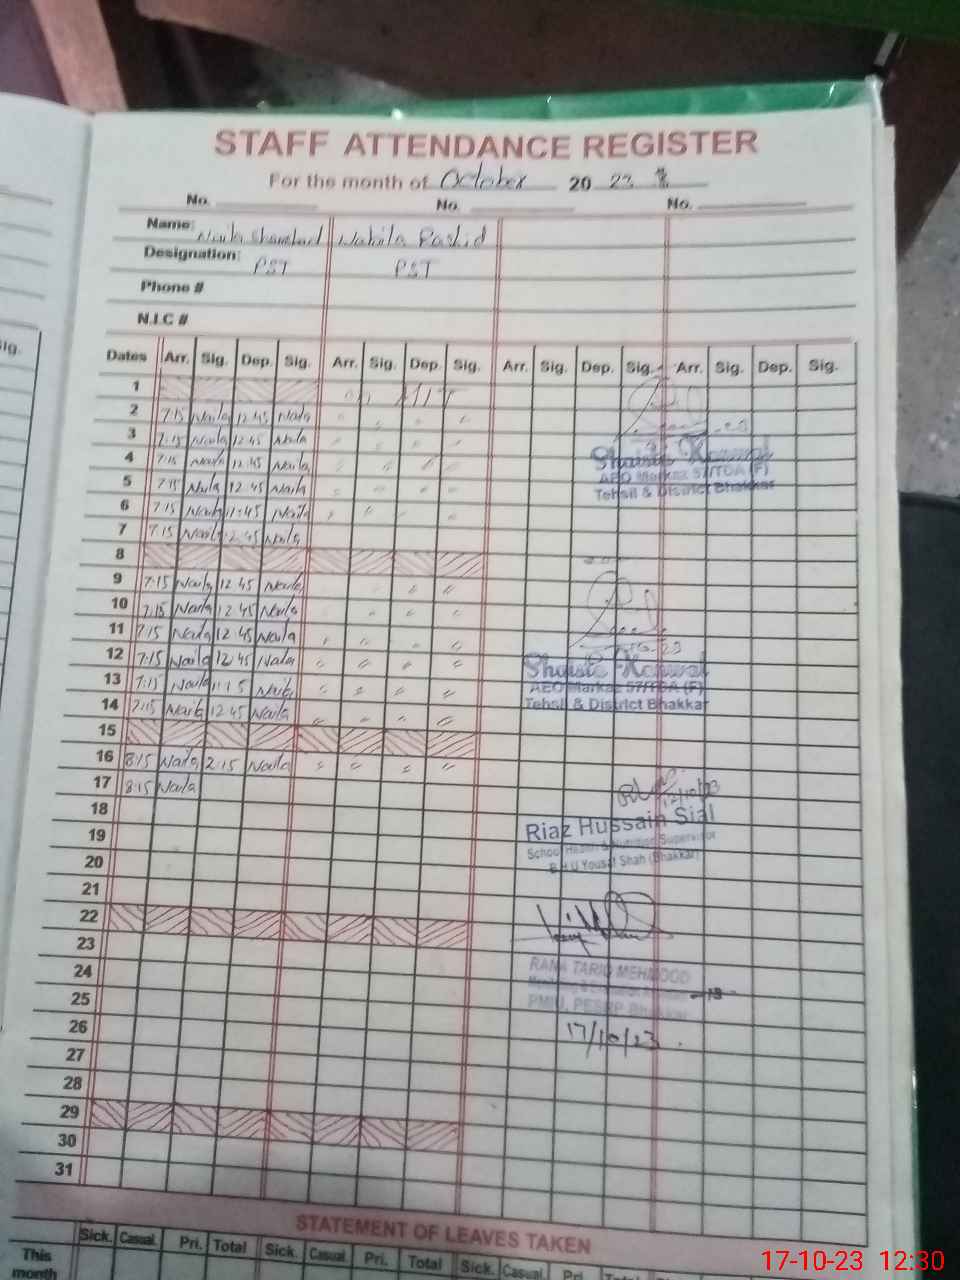 STAFF ATTENDANCE REGISTER
For the month of October 2023
No. No. No.
Name: Naila Nahila Rashid
Designation: PST PST
Phone #
N.I.C #
Dates Arr. Sig. Dep. Sig. Arr. Sig. Dep. Sig. Arr. Sig. Dep. Sig. Arr. Sig. Dep. Sig.
1
2 7:15 Naila 12:45 Naila
3 7:15 Naila 12:45 Naila
4 7:15 Naila 12:45 Naila
5 7:15 Naila 12:45 Naila
6 7:15 Naila 11:45 Naila
7 7:15 Naila 12:45 Naila
8
9 7:15 Naila 12:45 Naila
10 7:15 Naila 12:45 Naila
11 7:15 Naila 12:45 Naila
12 7:15 Naila 12:45 Naila
13 7:15 Naila Naila
14 7:15 Naila 12:45 Naila
15
16 8:15 Naila 2:15 Naila
17 8:15 Naila
18
19
20
21
22
23
24
25
26
27
28
29
30
31
Shaista Kanwal
AEO Markaz 57/TDA (F)
Tehsil & District Bhakkar
Shaista Kanwal
AEO Markaz 57/TDA (F)
Tehsil & District Bhakkar
12/10/23
Riaz Hussain Sial
School Health & Nutrition Supervisor
B.H.U Yousaf Shah (Bhakkar)
RANA TARIQ MEHMOOD
PMIU, PESRP Bhakkar
17/10/23
STATEMENT OF LEAVES TAKEN
Sick. Casual. Pri. Total Sick. Casual. Pri. Total Sick. Casual. Pri.
This
month
Sig.
17-10-23 12:30